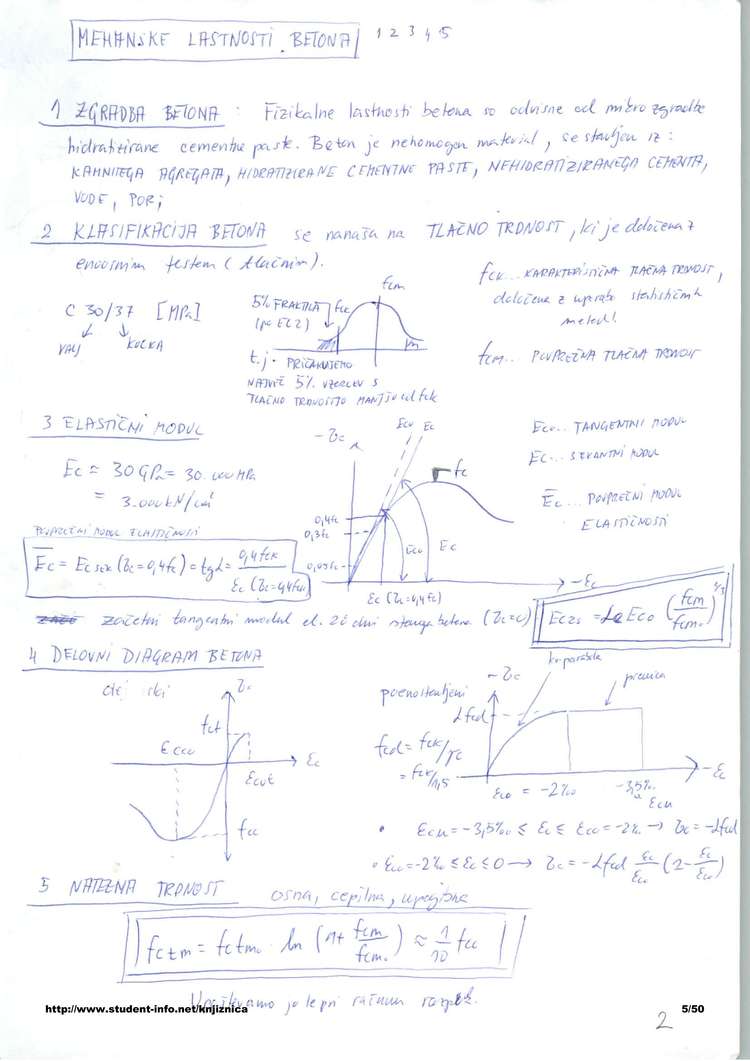 MEHANSKE LASTNOSTI BETONA 1 2 3 4 5
1 ZGRADBA BETONA : Fizikalne lastnosti betona so odvisne od mikro zgradbe
hidratizirane cementne paste. Beton je nehomogen material, sestavljen iz :
KAMNITEGA AGREGATA, HIDRATIZIRANE CEMENTNE PASTE, NEHIDRATIZIRANEGA CEMENTA,
VODE, POR;
2 KLASIFIKACIJA BETONA se nanaša na TLAČNO TRDNOST, ki je določena z
enoosnim testom (tlačnim).
fck... KARAKTERISTIČNA TLAČNA TRDNOST,
določena z uporabo statističnih
metod!
fcm... POVPREČNA TLAČNA TRDNOST
C 30/37 [MPa]
VALJ KOCKA
fcm
5% FRAKTILA fck
(po EC2)
t.j. PRIČAKUJEMO
NAJVEČ 5% VZORCEV S
TLAČNO TRDNOSTJO MANJŠO od fck
3 ELASTIČNI MODUL
Ec ≈ 30 GPa = 30.000 MPa
= 3.000 kN/cm²
POVPREČNI MODUL ELASTIČNOSTI
Ēc = Ec sek (σc=0,4fc) = tgα = 0,4fck / εc (σc=0,4fck)
-σc
Eco Ec
fc
0,4fc
0,3fc
0,05fc
Eco Ec
-εc
εc (σc=0,4fc)
Eco... TANGENTNI MODUL
Ec... SEKANTNI MODUL
Ēc... POVPREČNI MODUL
ELASTIČNOSTI
začetni tangentni modul el. 28 dni starega betona (σc=0)
Ec28 = αE Eco (fcm/fcmo)^1/3
4 DELOVNI DIAGRAM BETONA
dejanski
σc
fct
εccu
εc
εcut
fcc
poenostavljeni
-σc
kv. parabola
premica
αfcd
fcd = fck/γc
= fck/1,5
εco = -2‰
-3,5‰
εcu
-εc
• εcu = -3,5‰ ≤ εc ≤ εco = -2‰ → σc = -αfcd
• εco = -2‰ ≤ εc ≤ 0 → σc = -αfcd εc/εco (2 - εc/εco)
5 NATEZNA TRDNOST osna, cepilna, upogibna
fctm = fctmo ln (1+ fcm/fcmo) ≈ 1/10 fcc
Upoštevamo jo le pri računu razpok.
http://www.student-info.net/knjiznica
5/50
2